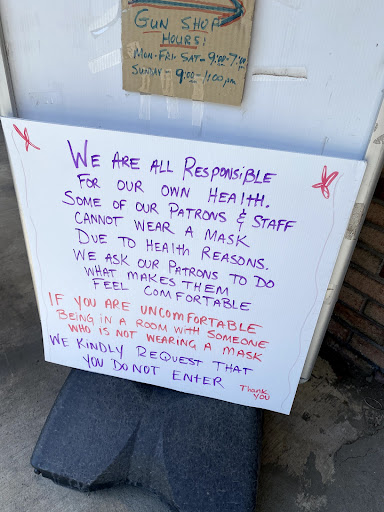 GUN SHOP
HOURS:
MON-FRI-SAT-9:00-7:00
SUNDAY-9:00-1:00pm
WE ARE ALL RESPONSIBLE
FOR OUR OWN HEALTH.
SOME OF OUR PATRONS & STAFF
CANNOT WEAR A MASK
DUE TO HEALTH REASONS.
WE ASK OUR PATRONS TO DO
WHAT MAKES THEM
FEEL COMFORTABLE
IF YOU ARE UNCOMFORTABLE
BEING IN A ROOM WITH SOMEONE
WHO IS NOT WEARING A MASK
WE KINDLY REQUEST THAT
YOU DO NOT ENTER
Thank
YOU